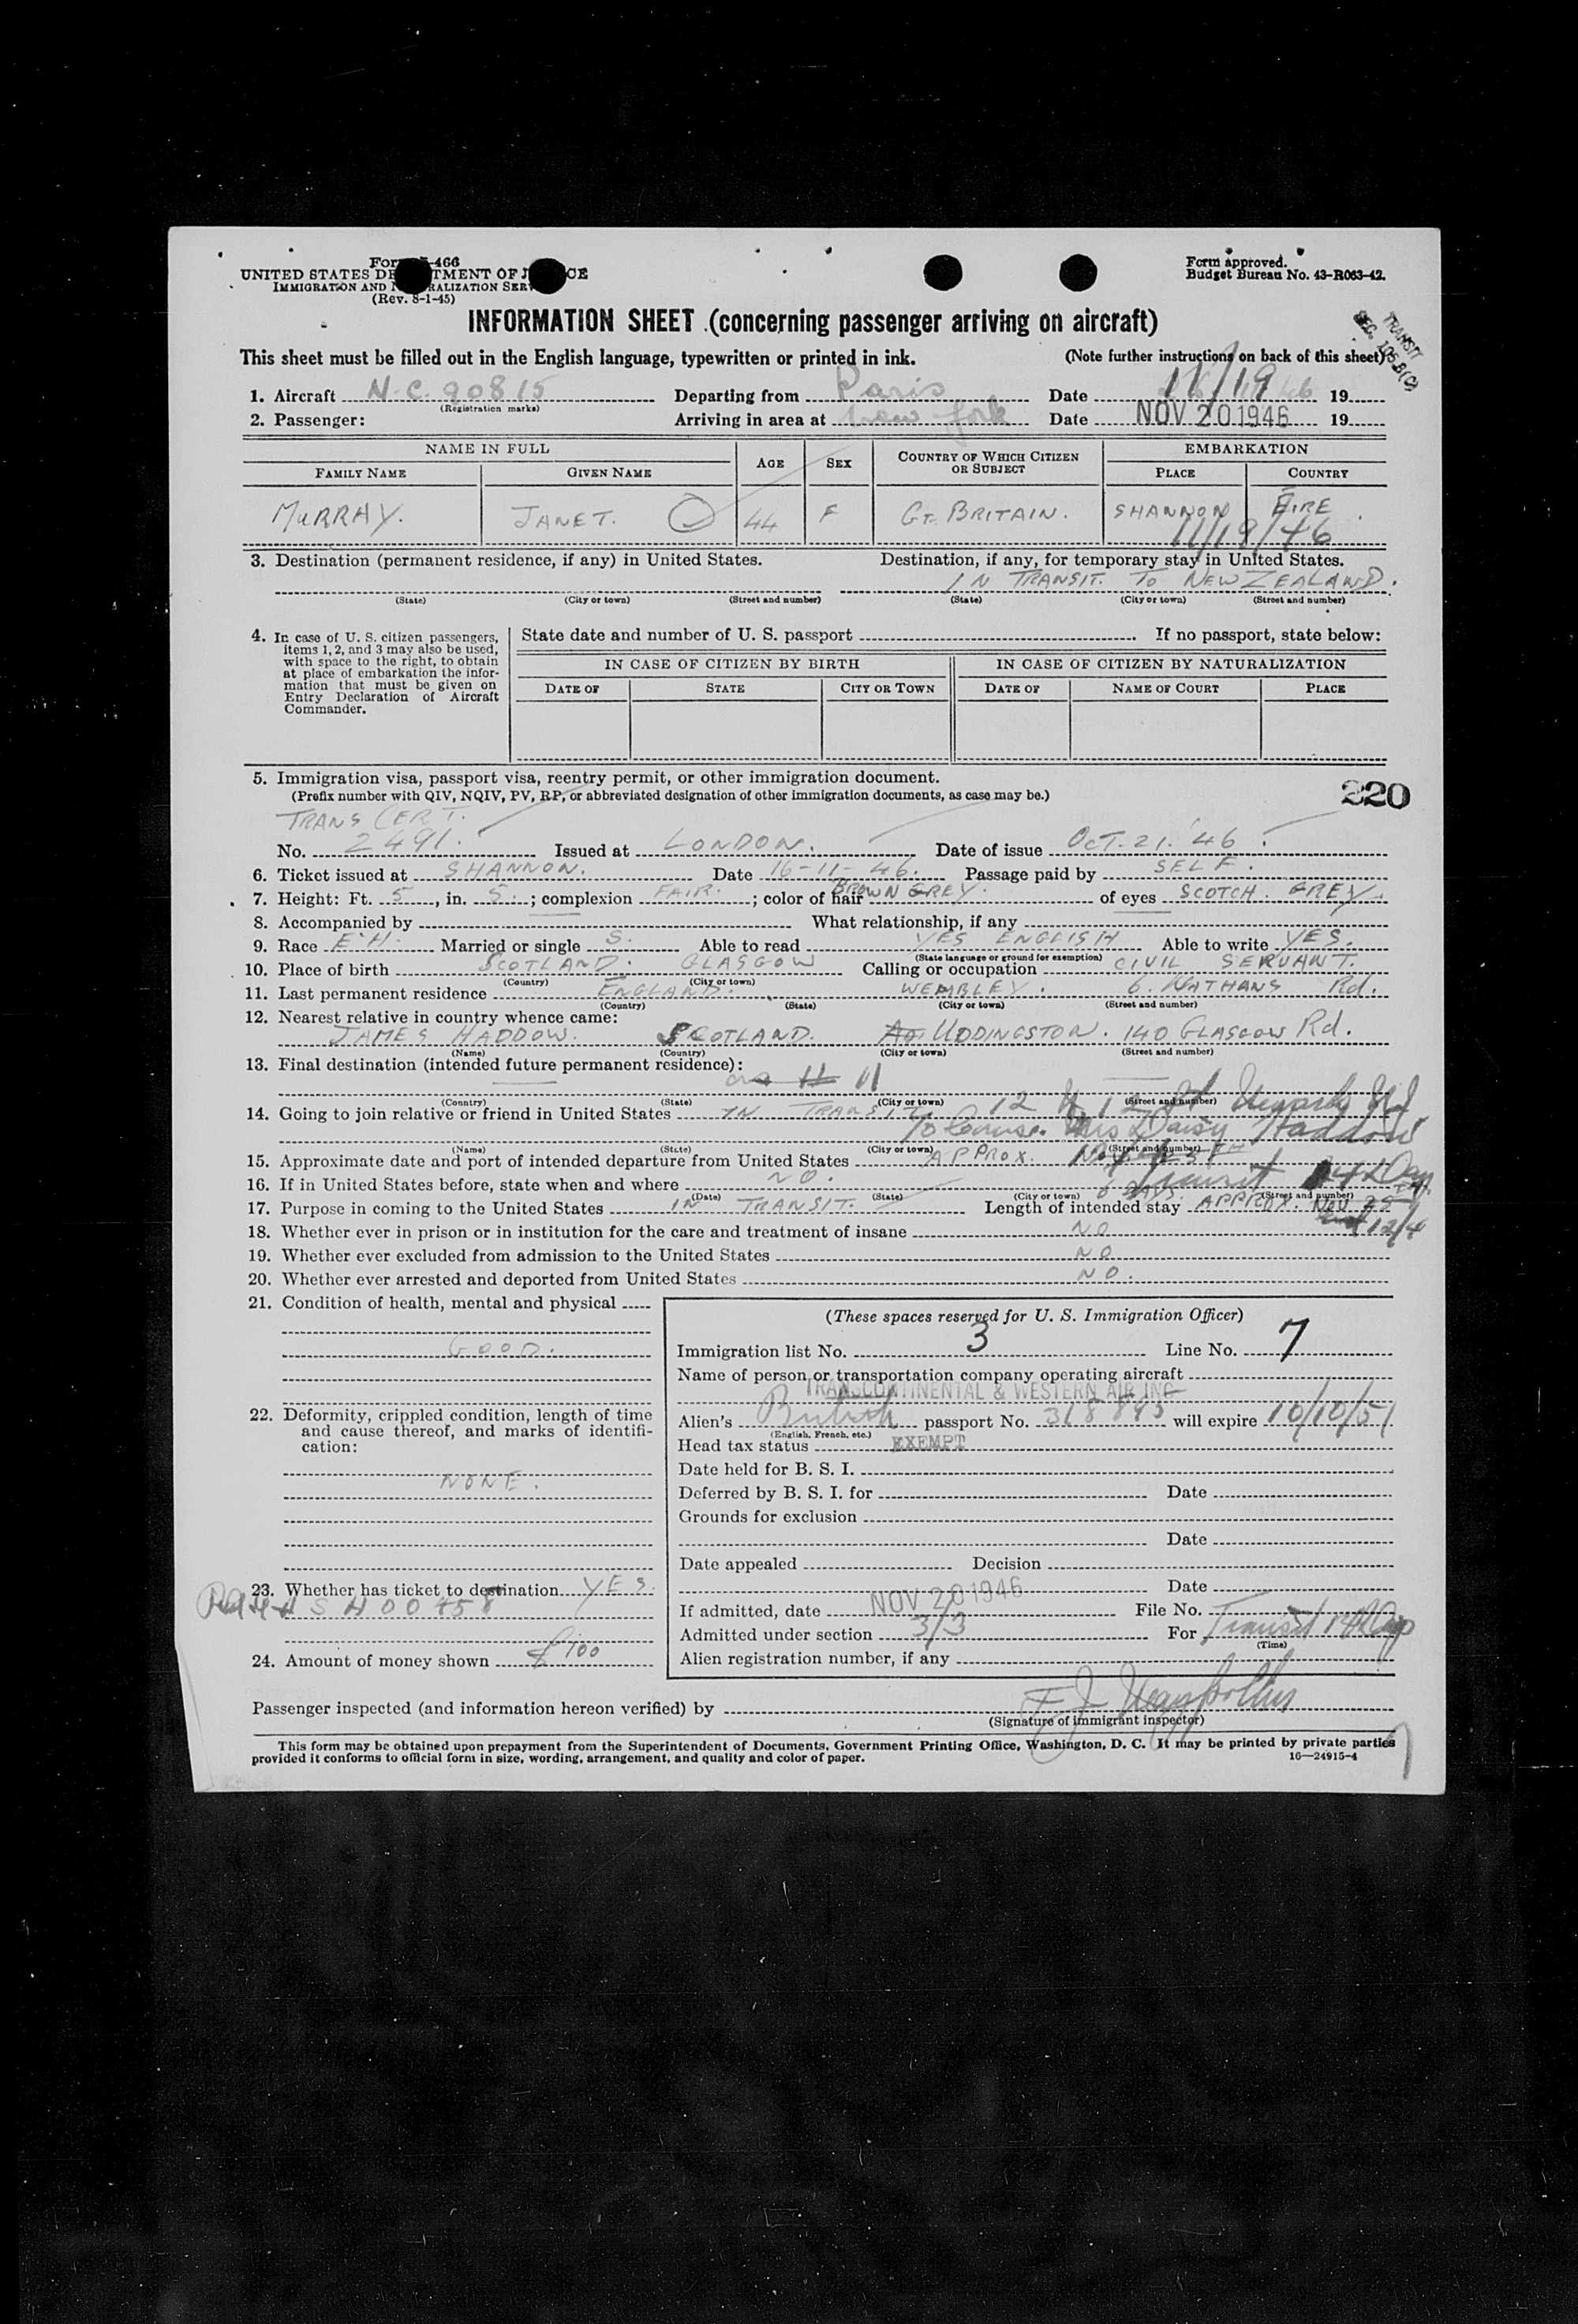 Form 466
UNITED STATES DE TMENT OF J CE
IMMIGRATION AND N RALIZATION SER
(Rev. 8-1-45)
Form approved.
Budget Bureau No. 43-R063-42.
INFORMATION SHEET (concerning passenger arriving on aircraft)
TRANSIT
SEC.
This sheet must be filled out in the English language, typewritten or printed in ink. (Note further instructions on back of this sheet)
1. Aircraft N.C. 90815 Departing from Paris Date 11/19 46 19
(Registration marks)
2. Passenger: Arriving in area at New York Date NOV 20 1946 19
NAME IN FULL AGE SEX COUNTRY OF WHICH CITIZEN OR SUBJECT EMBARKATION
FAMILY NAME GIVEN NAME PLACE COUNTRY
MURRAY. JANET. 44 F GT. BRITAIN. SHANNON EIRE.
11/19/46
3. Destination (permanent residence, if any) in United States. Destination, if any, for temporary stay in United States.
IN TRANSIT. TO NEW ZEALAND.
(State) (City or town) (Street and number) (State) (City or town) (Street and number)
4. In case of U. S. citizen passengers, items 1, 2, and 3 may also be used, with space to the right, to obtain at place of embarkation the information that must be given on Entry Declaration of Aircraft Commander.
State date and number of U. S. passport If no passport, state below:
IN CASE OF CITIZEN BY BIRTH IN CASE OF CITIZEN BY NATURALIZATION
DATE OF STATE CITY OR TOWN DATE OF NAME OF COURT PLACE
5. Immigration visa, passport visa, reentry permit, or other immigration document.
(Prefix number with QIV, NQIV, PV, RP, or abbreviated designation of other immigration documents, as case may be.)
220
TRANS CERT.
No. 2491. Issued at LONDON. Date of issue OCT. 21. '46.
6. Ticket issued at SHANNON. Date 16-11-46. Passage paid by SELF.
7. Height: Ft. 5, in. 5.; complexion FAIR.; color of hair BROWN GREY. of eyes SCOTCH. GREY.
8. Accompanied by What relationship, if any
9. Race Married or single S. Able to read YES ENGLISH Able to write YES.
(State language or ground for exemption)
10. Place of birth SCOTLAND. GLASGOW Calling or occupation CIVIL SERVANT.
(Country) (City or town)
11. Last permanent residence ENGLAND. WEMBLEY. 6. NATHANS Rd.
(Country) (State) (City or town) (Street and number)
12. Nearest relative in country whence came:
JAMES HADDOW. SCOTLAND. UDDINGSTON. 140 GLASGOW Rd.
(Name) (Country) (City or town) (Street and number)
13. Final destination (intended future permanent residence):
(Country) (State) (City or town) (Street and number)
14. Going to join relative or friend in United States IN TRANSIT
Mrs Daisy Haddow
(Name) (State) (City or town) (Street and number)
15. Approximate date and port of intended departure from United States APPROX.
16. If in United States before, state when and where NO.
(Date) (State) (City or town) (Street and number)
17. Purpose in coming to the United States IN TRANSIT. Length of intended stay APPROX. Nov 25
12/4
18. Whether ever in prison or in institution for the care and treatment of insane NO
19. Whether ever excluded from admission to the United States NO
20. Whether ever arrested and deported from United States NO.
21. Condition of health, mental and physical
GOOD.
22. Deformity, crippled condition, length of time and cause thereof, and marks of identification:
NONE.
23. Whether has ticket to destination YES.
24. Amount of money shown £100
(These spaces reserved for U. S. Immigration Officer)
Immigration list No. 3 Line No. 7
Name of person or transportation company operating aircraft
TRANSCONTINENTAL & WESTERN AIR INC
Alien's British passport No. will expire 10/10/51
(English, French, etc.)
Head tax status EXEMPT
Date held for B. S. I.
Deferred by B. S. I. for Date
Grounds for exclusion
Date
Date appealed Decision
Date
If admitted, date NOV 20 1946 File No.
Admitted under section 3/3 For Transit
(Time)
Alien registration number, if any
Passenger inspected (and information hereon verified) by
(Signature of immigrant inspector)
This form may be obtained upon prepayment from the Superintendent of Documents, Government Printing Office, Washington, D. C. It may be printed by private parties
provided it conforms to official form in size, wording, arrangement, and quality and color of paper.
16—24915-4